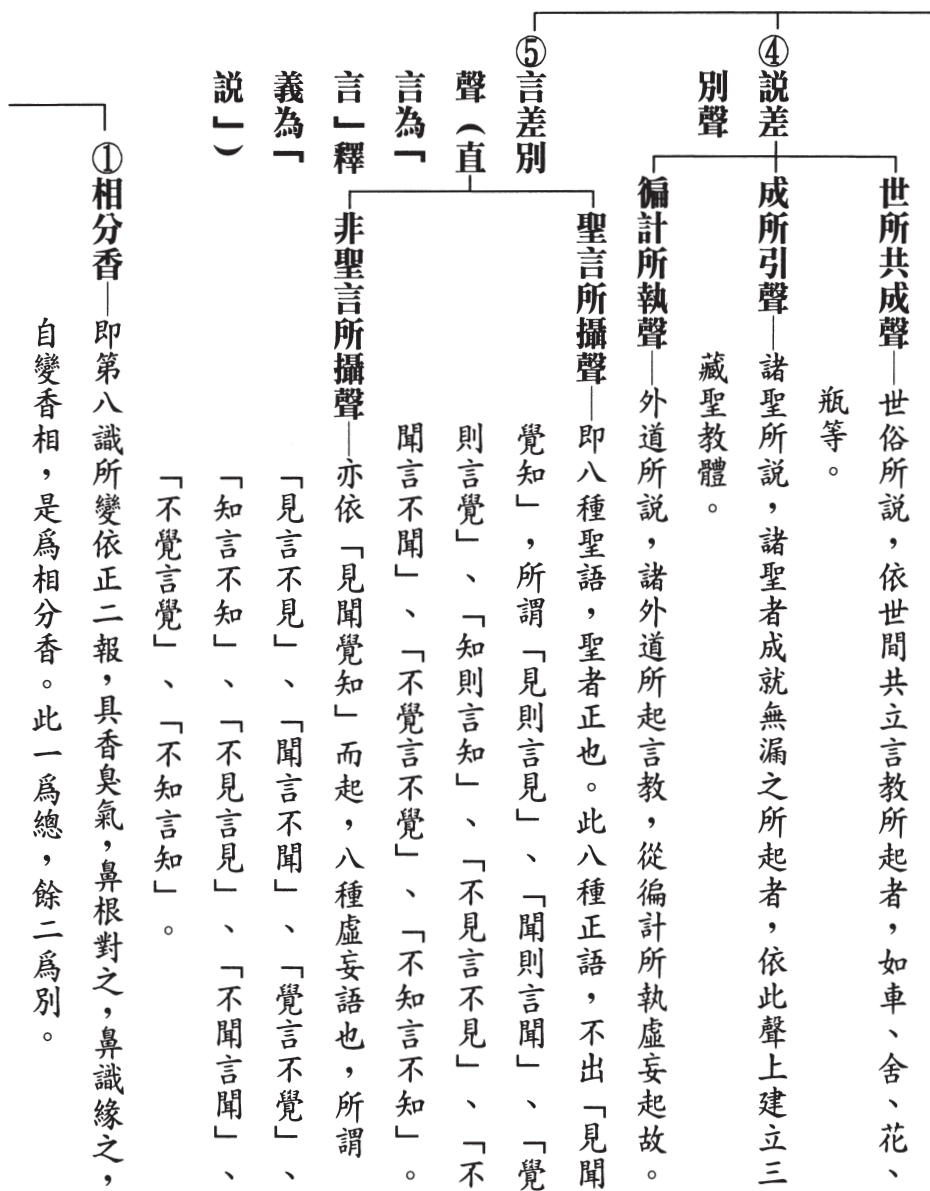 ④説差
別聲
世所共成聲—世俗所説，依世間共立言教所起者，如車、舍、花、
瓶等。
成所引聲—諸聖所説，諸聖者成就無漏之所起者，依此聲上建立三
藏聖教體。
徧計所執聲—外道所説，諸外道所起言教，從徧計所執虛妄起故。
⑤言差別
聲（直
言為「
言」釋
義為「
説」）
聖言所攝聲—即八種聖語，聖者正也。此八種正語，不出「見聞
覺知」，所謂「見則言見」、「聞則言聞」、「覺
則言覺」、「知則言知」、「不見言不見」、「不
聞言不聞」、「不覺言不覺」、「不知言不知」。
非聖言所攝聲—亦依「見聞覺知」而起，八種虛妄語也，所謂
「見言不見」、「聞言不聞」、「覺言不覺」、
「知言不知」、「不見言見」、「不聞言聞」、
「不覺言覺」、「不知言知」。
①相分香—即第八識所變依正二報，具香臭氣，鼻根對之，鼻識緣之，
自變香相，是爲相分香。此一爲總，餘二爲別。